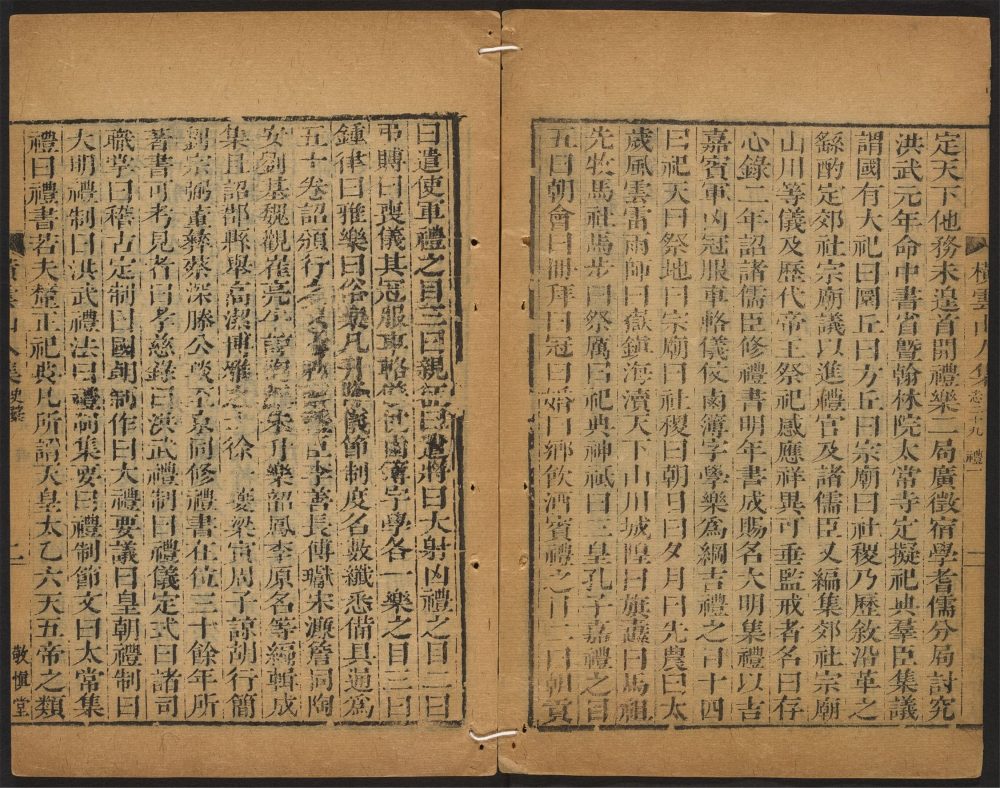 橫雲山人集 卷二九 禮
一
定天下他務未遑首開禮樂二局廣徵宿學耆儒分局討究
洪武元年命中書省暨翰林院太常寺定擬祀典羣臣集議
謂國有大祀曰圜丘曰方丘曰宗廟曰社稷乃歷敘沿革之
繇酌定郊社宗廟議以進禮官及諸儒臣又編集郊社宗廟
山川等儀及歷代帝王祭祀感應祥異可垂監戒者名曰存
心錄二年詔諸儒臣修禮書明年書成賜名大明集禮以吉
嘉賓軍凶冠服車輅儀仗鹵簿字學樂為綱吉禮之目十四
曰祀天曰祭地曰宗廟曰社稷曰朝日曰夕月曰先農曰太
歲風雲雷雨師曰嶽鎮海瀆天下山川城隍曰旗纛曰馬祖
先牧馬社馬步曰祭厲曰祀典神祇曰三皇孔子嘉禮之目
五曰朝會曰冊拜曰冠曰婚曰鄉飲酒賓禮之目二曰朝貢
曰遣使軍禮之目三曰親征曰遣將曰大射凶禮之目二曰
弔賻曰喪儀其冠服車輅儀仗鹵簿字學各一樂之目三曰
鍾律曰雅樂曰俗樂凡升降儀節制度名數纖悉備具通為
五十卷詔頒行 臣李善長傅瓛宋濂詹同陶
安劉基魏觀崔亮牛諒 朱升樂韶鳳李原名等編輯成
集且詔郡縣舉高潔博雅之士徐一夔梁寅周子諒胡行簡
劉宗弼董彝蔡深滕公琰至京同修禮書在位三十餘年所
著書可考見者曰孝慈錄曰洪武禮制曰禮儀定式曰諸司
職掌曰稽古定制曰國朝制作曰大禮要議曰皇朝禮制曰
大明禮制曰洪武禮法曰禮制集要曰禮制節文曰太常集
禮曰禮書若夫釐正祀典凡所謂天皇太乙六天五帝之類
山人集 史藁
二
敬慎堂